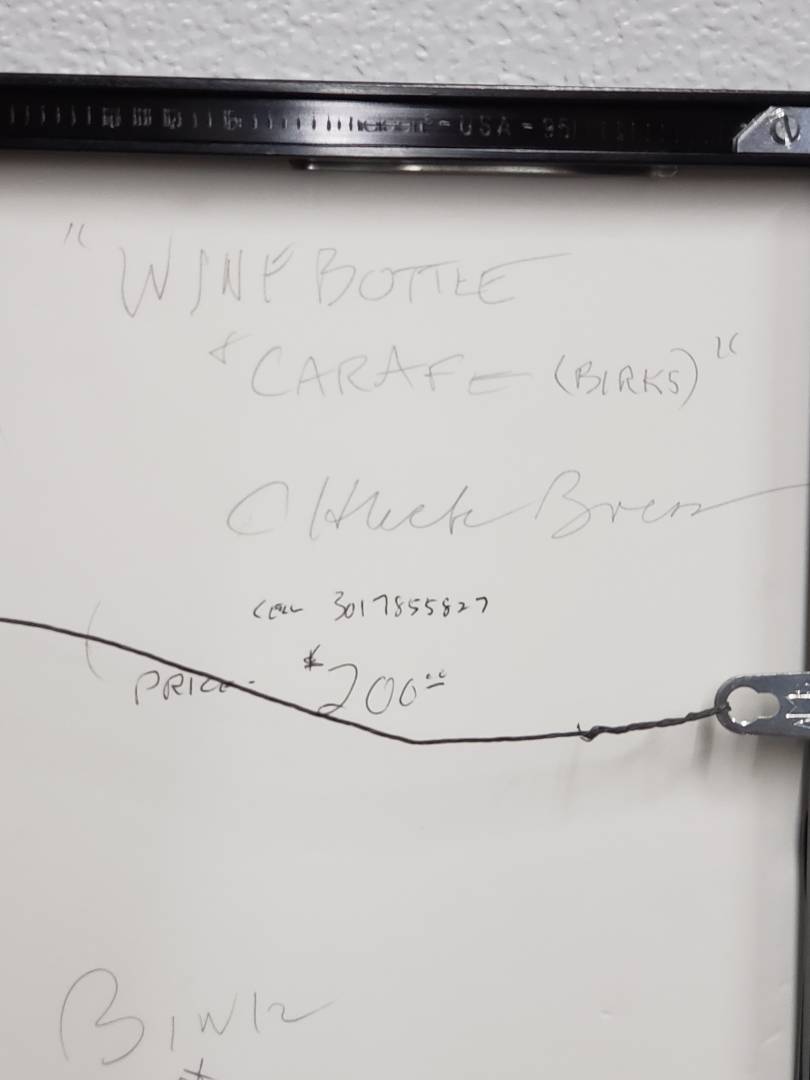 USA - 95
"WINE BOTTLE
& CARAFE (BIRKS)"
Chuck
CELL 3017855827
PRICE - $200.00